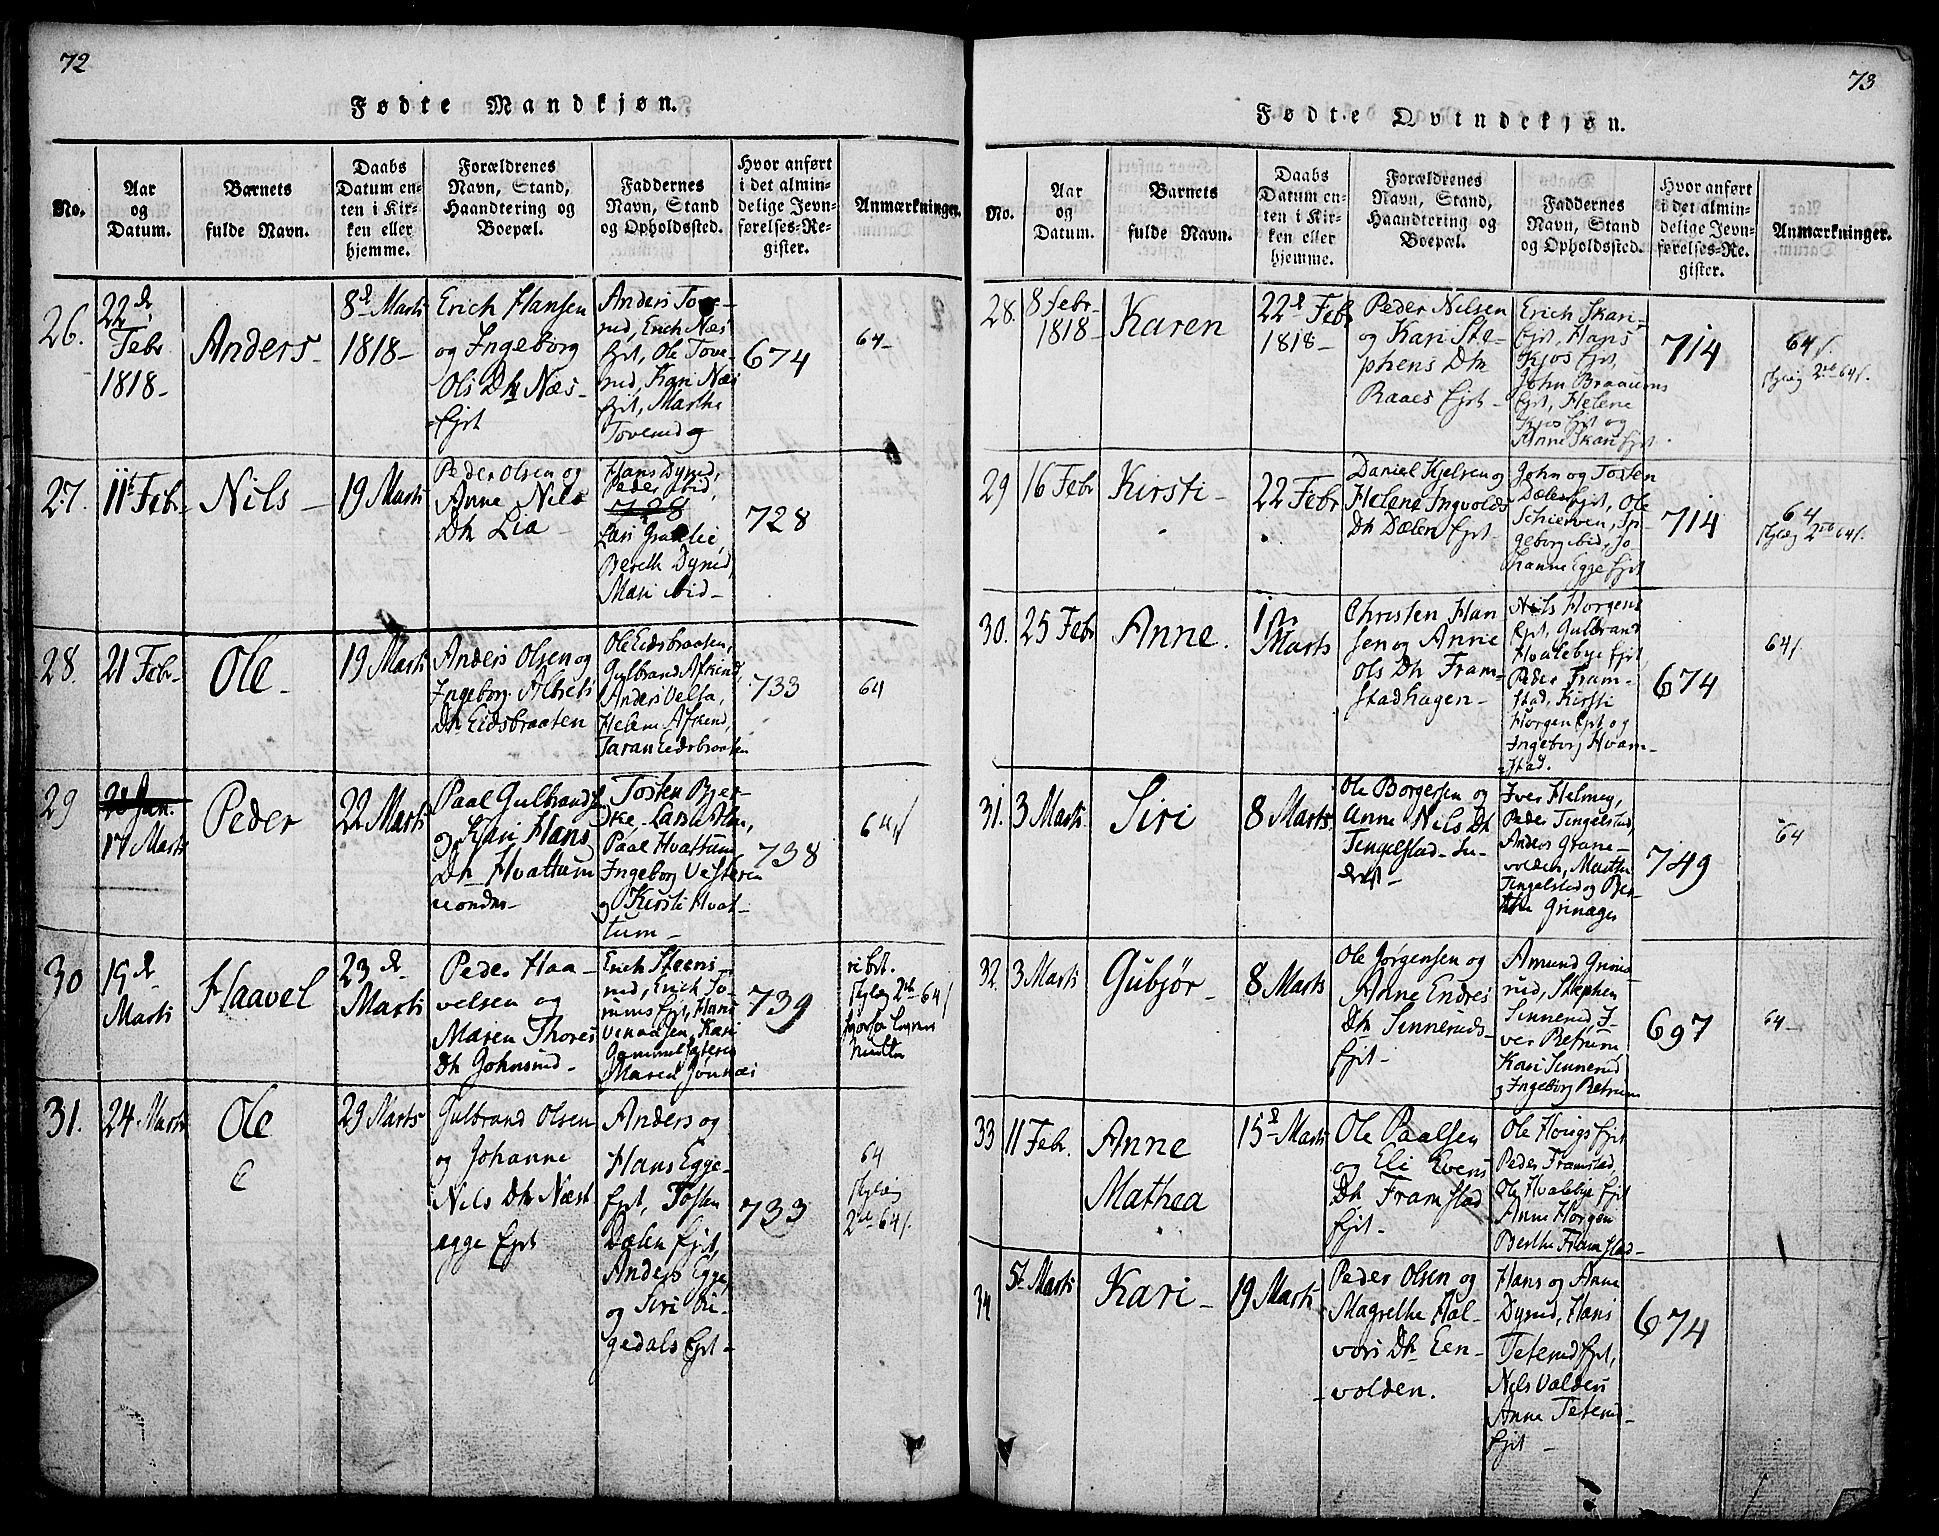 72
Fødte Mandkjøn.
No.
Aar
og
Datum.
Barnets
fulde Navn.
Daabs
Datum en-
ten i Kir-
ken eller
hjemme.
Forældrenes
Navn, Stand,
Haandtering og
Boepæl.
Faddernes
Navn, Stand
og Opholdssted.
Hvor anført
i det almin-
delige Jevn-
førelses-Re-
gister.
Anmærkninger.
26.
22de
Febr
1818-
Anders-
8de Marti
1818-
Erich Hansen
og Ingeborg
Ols Dtr Næs-
Ejet
Anders Tove-
rud, Erich Næs
Ejet, Ole Tove-
rud, Kari Næs
Ejet, Marthe
Toverud og
674
64-
27.
11t Febr-
Nils-
19 Marti
Peder Olsen og
Anne Nils
Dtr Lia-
Hans Dyrud,
Peder ibid,
728
Lars
Berethe Dyrud,
Mari ibid-
728
28.
21 Febr-
Ole-
19 Marti
Anders Olsen og
Ingeborg
Dtr Eidsbraaten
Ole Eidsbraaten,
Gulbrand
Anders Velta,
Helene
Taran Eidsbraaten
733
64
29
20 Jan.
17 Marti
Peder
22 Marti
Paal Gulbrands
og Kari Hans
Dtr Hvattum
Tosten Bjer-
ke, Lars Alm,
Paal Hvattum
Ingeborg Vesteren
og Kirsti Hvat-
tum-
738
64/
30
19de
Marti
Haavel
23de
Marti
Peder Haa-
velsen og
Maren Thores
Dtr Gohnsrud-
Erich Steens
rud, Erich To-
rums Ejet, Hans
Kari
739
31.
24 Marti
Ole
29 Marts
Gulbrand Olsen
og Johanne
Nils Dtr Næst
egge Ejet
Anders og
Hans Egge-
Ejet, Tosten
Dælen Ejet,
Anders Egge,
og Siri Ri-
gedals Ejet-
733
64
2de 64/.
73
Fødte Qvindekjøn.
No.
Aar
og
Datum.
Barnets
fulde Navn.
Daabs
Datum en-
ten i Kir-
ken eller
hjemme.
Forældrenes
Navn, Stand,
Haandtering og
Boepæl.
Faddernes
Navn, Stand
og Opholdssted.
Hvor anført
i det almin-
delige Jevn-
førelses-Re-
gister.
Anmærkninger.
28.
8 Febr-
1818-
Karen
22de Febr
1818-
Peder Nilsen
og Kari Ste-
phens Dtr
Raaes Ejet-
Erich Skari-
Ejet, Hans
Kjos Ejet,
John Braaums
Ejet, Helene
Kjos Ejet og
Anne Skari Ejet.
714
64/.
2de 64/.
29
16 Febr
Kirsti-
22 Febr
Daniel Kjelsen og
Helene Ingvolds
Dtr Dælen Ejet-
John og Tosten
Dælen Ejet, Ole
Schierven, In-
geborg ibid, Jo-
hanne Egge Ejet
714
64
2de 64/.
30.
25 Febr
Anne.
1ste
Marts
Christen Han
sen og Anne
Ols Dtr Fram-
stadhagen-
Nils Horgens
Ejet, Gulbrand
Hvalebye Ejet,
Peder Fram-
stad, Kirsti
Horgen Ejet og
Ingeborg Hvam-
stad.
674
64/.
31.
3 Marti
Siri
8 Marts
Ole Borgersen og
Anne Nils Dtr
Tengelstad-
Iver Helmey,
Peder Tengelstad,
Anders Grane-
volden, Marthe
Tengelstad og Ber-
the Grinager
749
64
32.
3 Marts
Gubjør-
8 Marts
Ole Jørgensen og
Anne Endres
Dtr Sinneruds-
Ejet-
Amund
rud, Stephen
Sinnerud, I-
ver Retrum
Kari Sinnerud
og Ingeborg Retrum
697
64-
33
11 Febr.
Anne
Mathea
15de Marti
Ole Paalsen
og Eli Evens
Dtr Framstad
Ejet-
Ole Horgs Ejet
Peder Framstad,
Ole Hvalebye Ejet
Anne Horgen
Berthe Framstad-
34
5t Marti
Kari-
19 Marti
Peder Olsen og
Magrethe Hal-
vors Dtr Een-
volden.
Hans og Anne
Dyrud, Hans
Teterud Ejet,
Nils Valders
Anne Teterud-
Ejet-
674